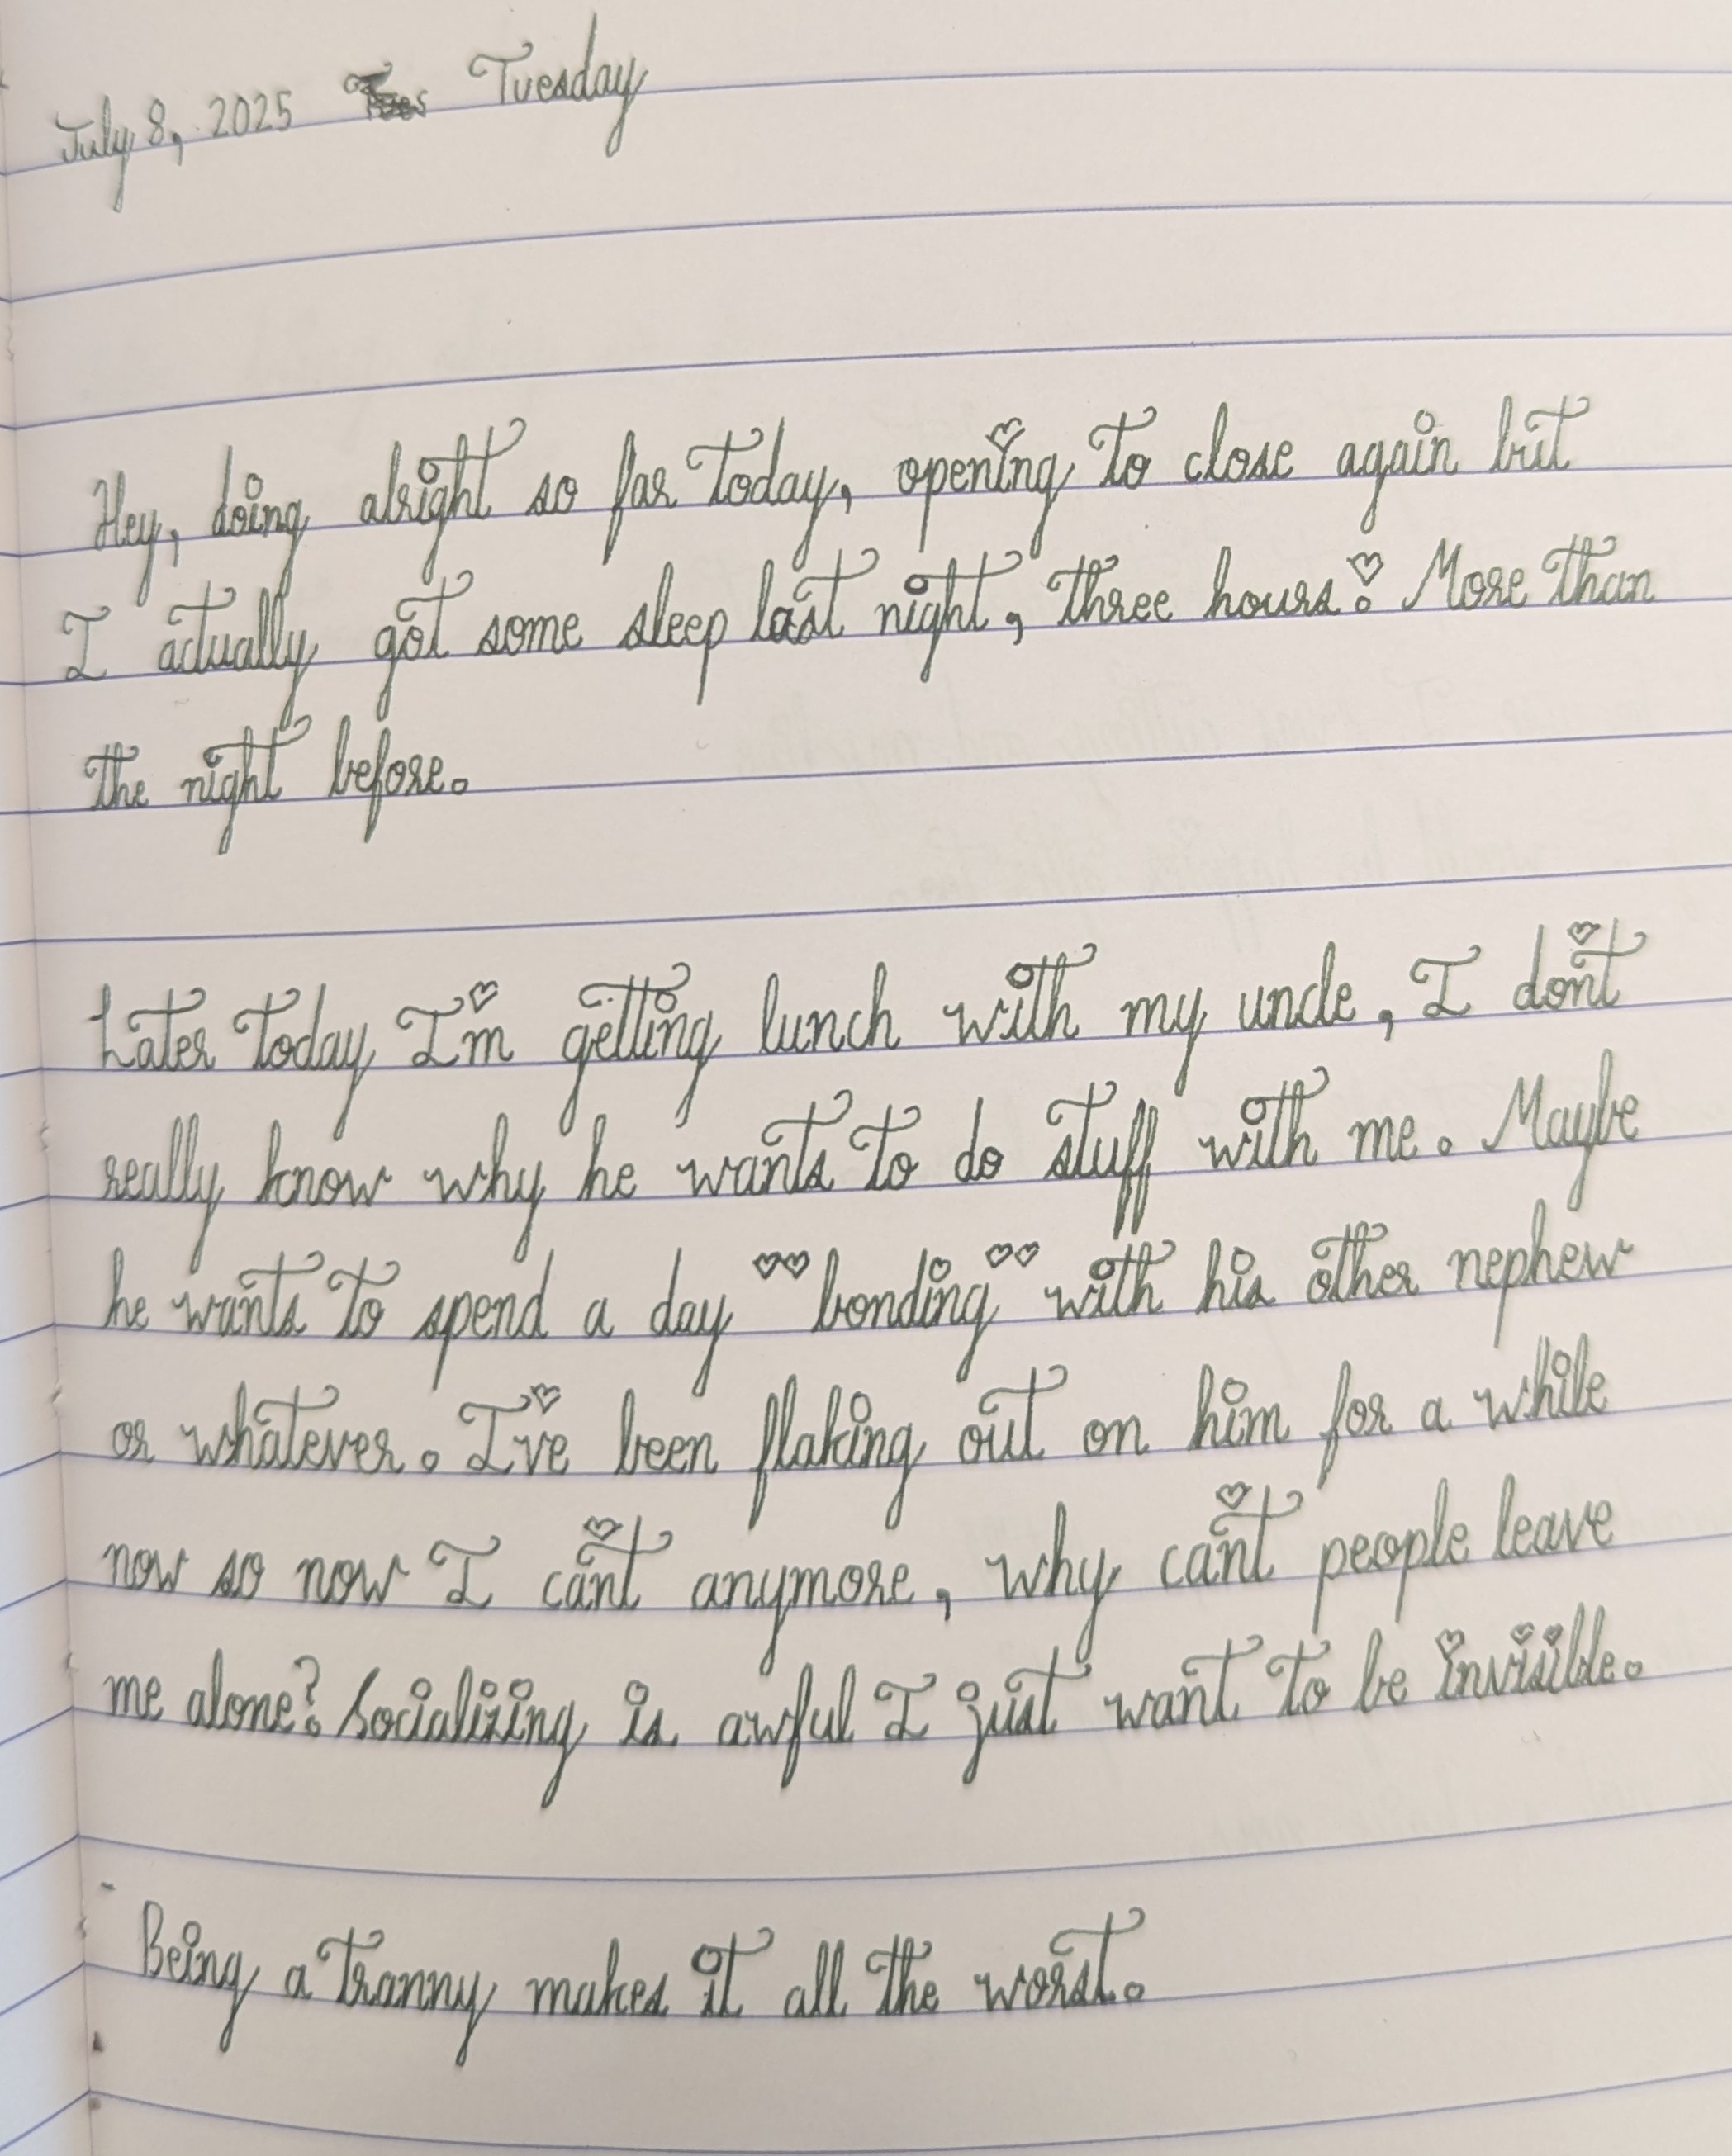 July 8, 2025 Tues Tuesday
Hey, doing alright so far today, opening to close again but
I actually got some sleep last night, three hours! More than
the night before.
Later today I'm getting lunch with my uncle, I don't
really know why he wants to do stuff with me. Maybe
he wants to spend a day "bonding" with his other nephew
or whatever. I've been flaking out on him for a while
now so now I can't anymore, why can't people leave
me alone? Socializing is awful I just want to be invisible.
Being a tranny makes it all the worst.